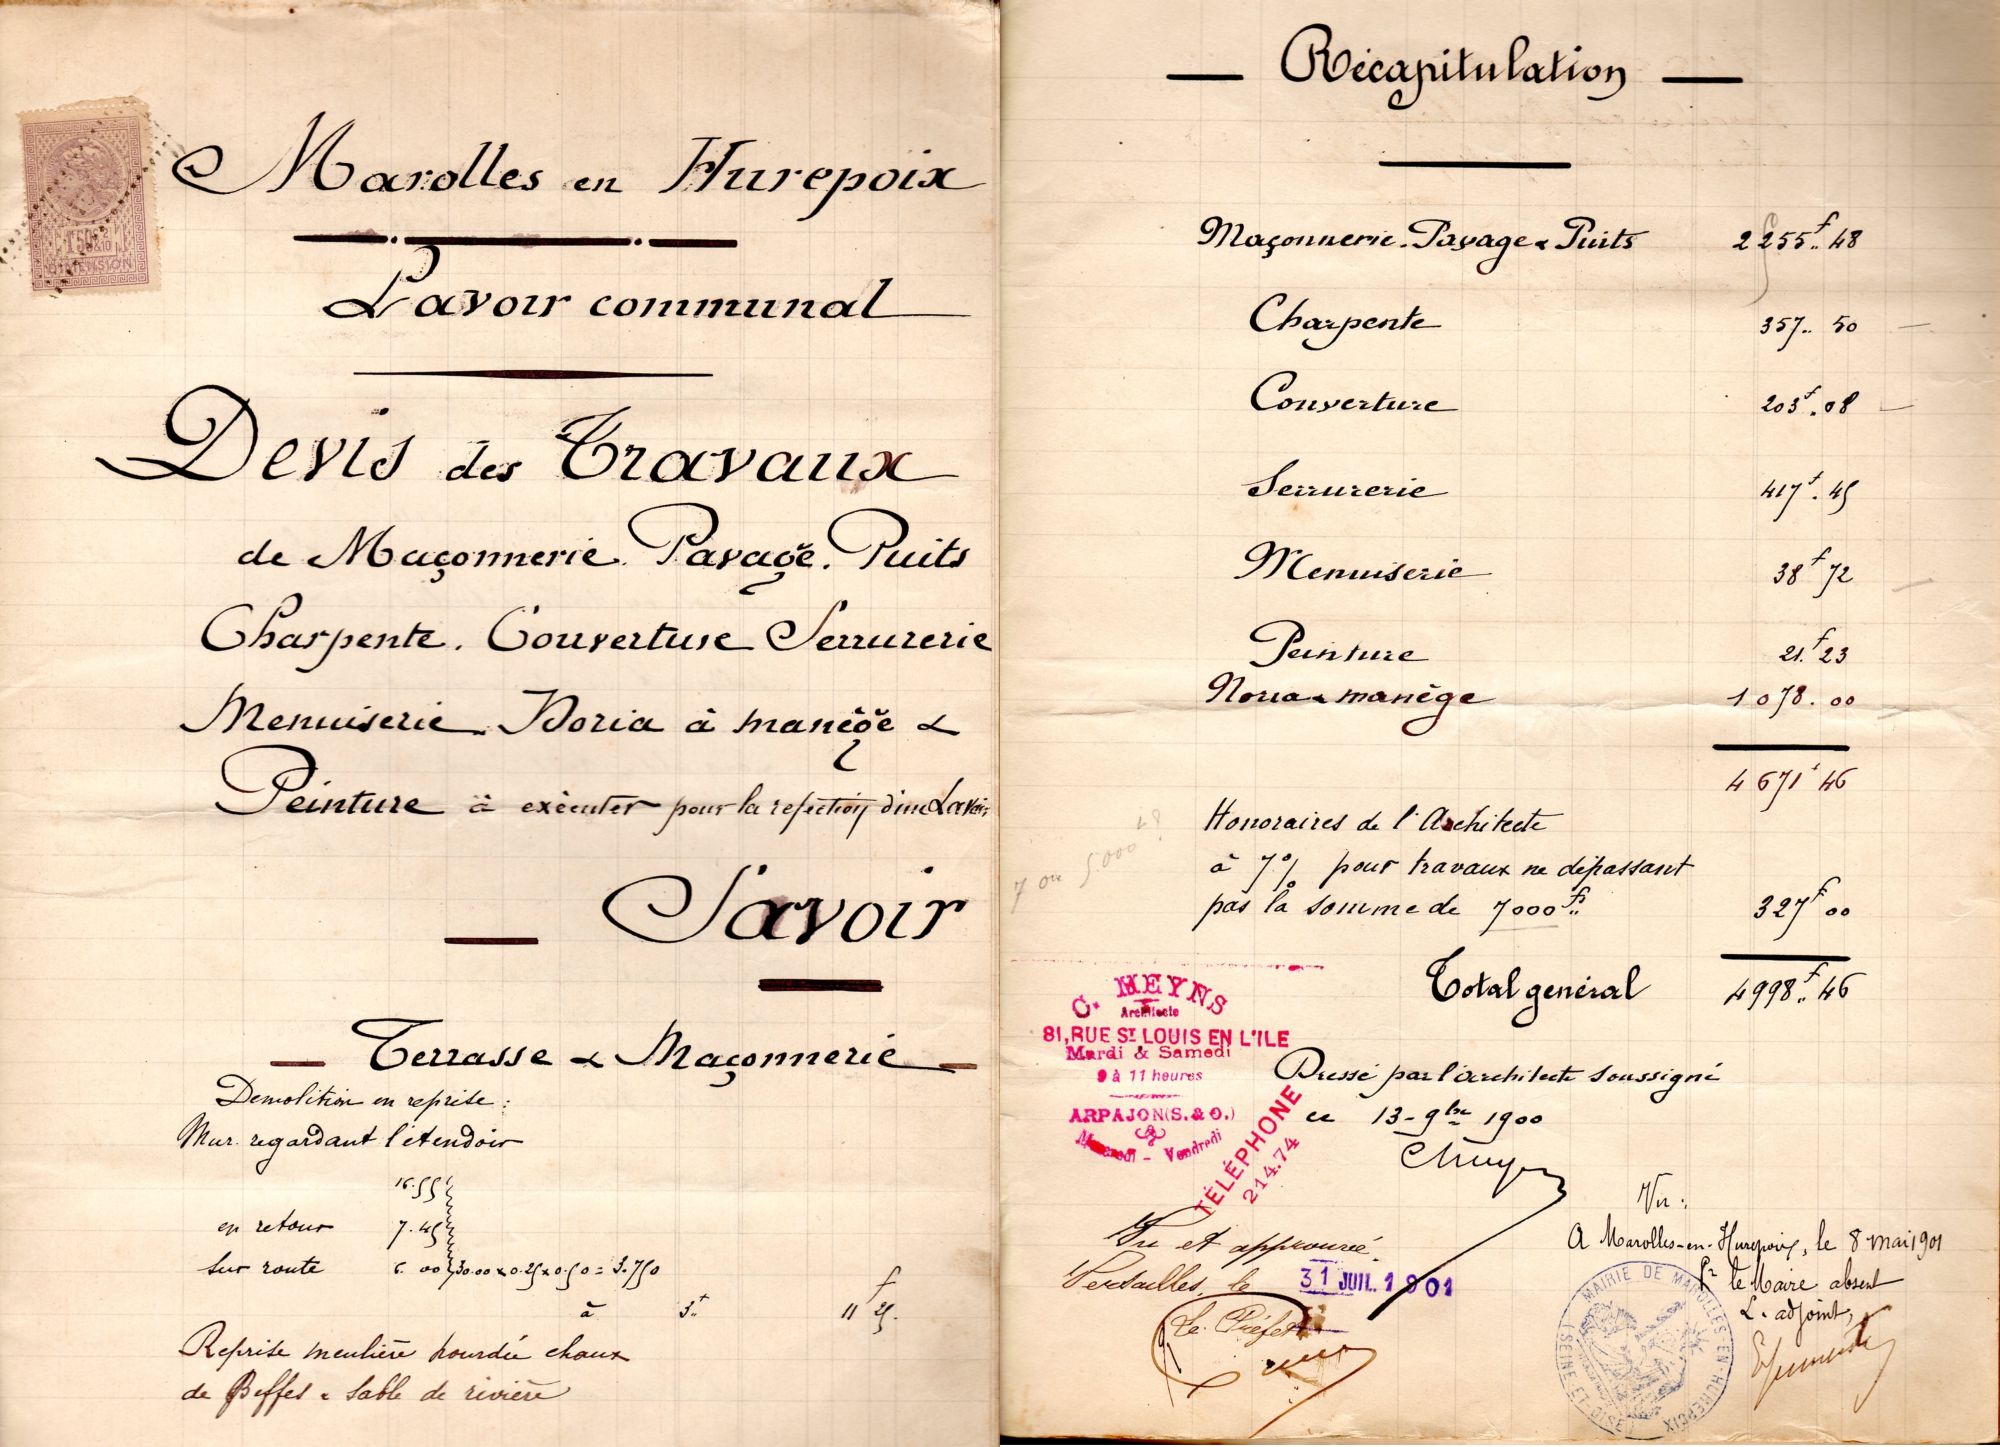 Marolles en Hurepoix
Lavoir communal
Devis des Travaux
de Maçonnerie. Pavage. Puits
Charpente. Couverture Serrurerie
Menuiserie. Noria à manège &
Peinture à exécuter pour la refection d'un Lavoir
Savoir
Terrasse & Maçonnerie
Demolition en reprise:
Mur regardant l'étendoir
16.55
en retour 7.45
sur route 6.00 30.00 x 0.25 x 0.50 = 3.750
à 3f 11f 25.
Reprise meulière hourdée chaux
de Beffes & sable de rivière
DIMENSION
Récapitulation
Maçonnerie. Pavage & Puits 2255f.48
Charpente 357.. 50
Couverture 203f.08
Serrurerie 417f.45
Menuiserie 38f 72
Peinture 21.f 23
Noria & manège 1078.00
4671f 46
Honoraires de l'Architecte
à 7% pour travaux ne dépassant
pas la somme de 7000f.. 327f 00
Total général 4998f.. 46
C. MEYNS
Architecte
81, RUE ST LOUIS EN L'ILE
Mardi & Samedi
9 à 11 heures
ARPAJON (S. & O.)
Mercredi - Vendredi
TÉLÉPHONE
214.74
Dressé par l'architecte soussigné
ce 13 - 9bre 1900
Vu et approuvé.
Versailles, le 31 JUIL 1901
Le Préfet
Vu:
A Marolles-en-Hurepoix, le 8 mai 1901
Pr le Maire absent
L. adjoint,
MAIRIE DE MAROLLES-EN-HUREPOIX
(SEINE ET OISE)